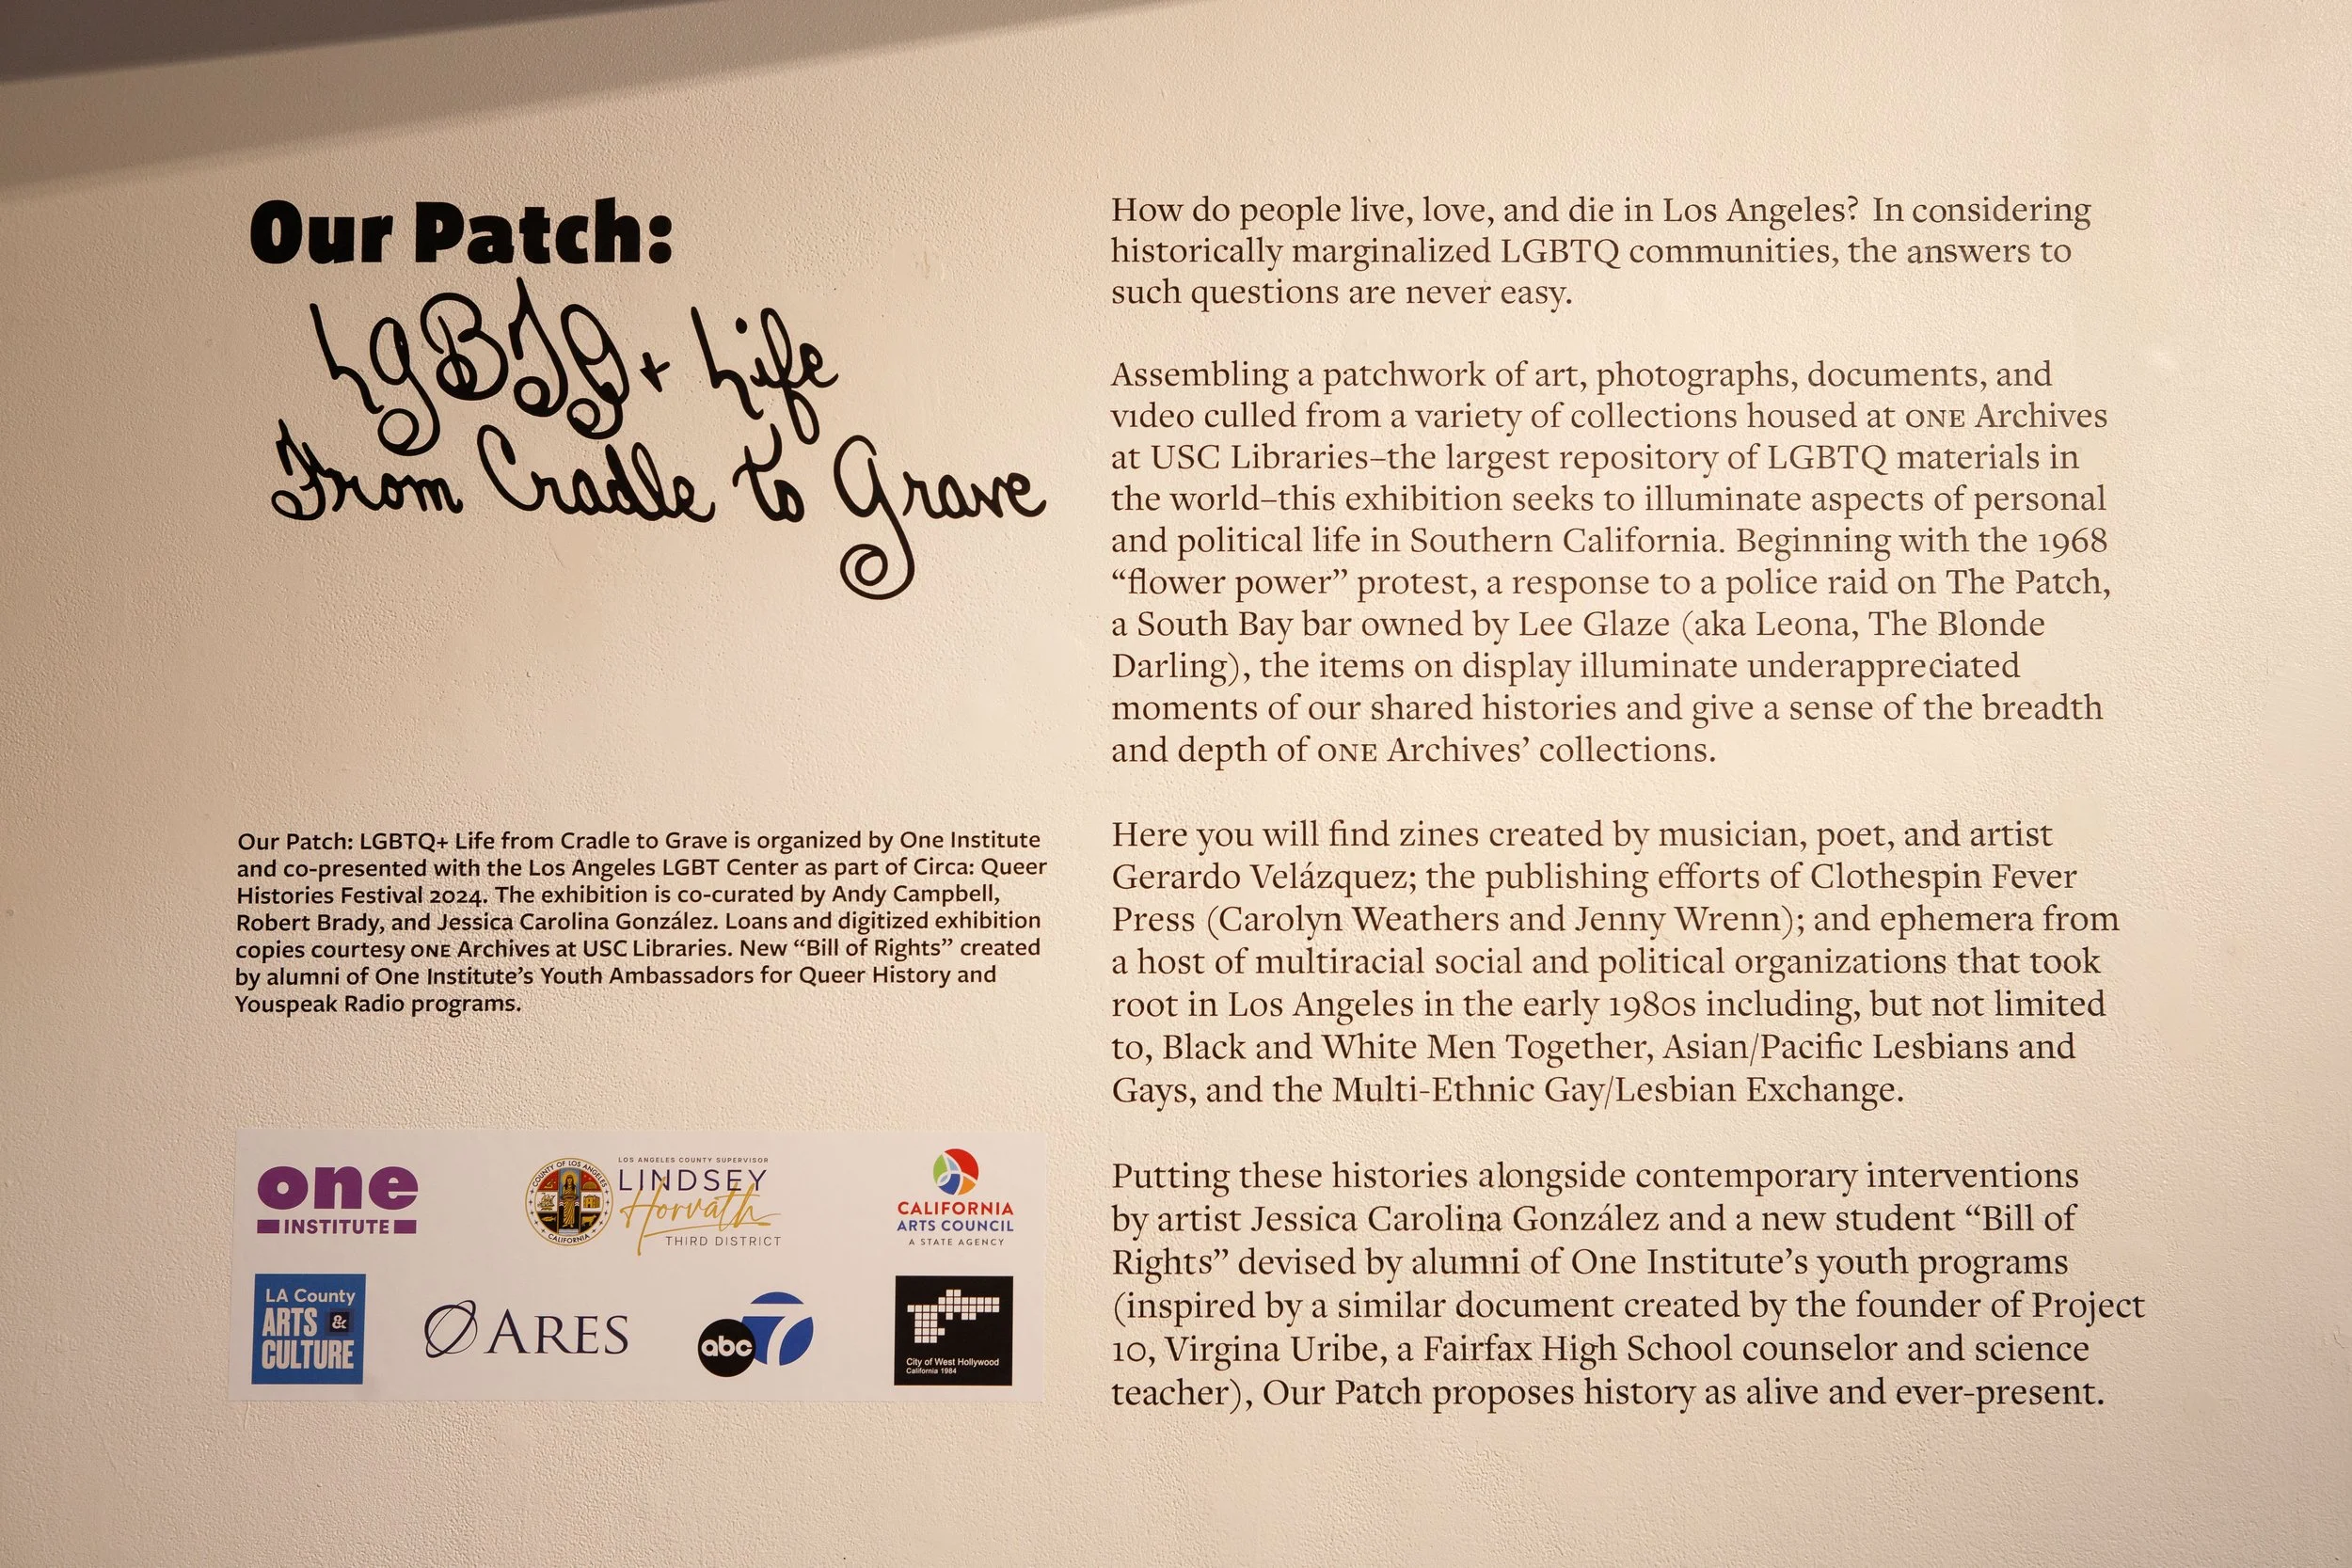 Our Patch:
LGBTQ+ Life
From Cradle to Grave
Our Patch: LGBTQ+ Life from Cradle to Grave is organized by One Institute
and co-presented with the Los Angeles LGBT Center as part of Circa: Queer
Histories Festival 2024. The exhibition is co-curated by Andy Campbell,
Robert Brady, and Jessica Carolina González. Loans and digitized exhibition
copies courtesy ONE Archives at USC Libraries. New “Bill of Rights” created
by alumni of One Institute’s Youth Ambassadors for Queer History and
Youspeak Radio programs.
one
INSTITUTE
COUNTY OF LOS ANGELES
CALIFORNIA
LOS ANGELES COUNTY SUPERVISOR
LINDSEY
Horvath
THIRD DISTRICT
CALIFORNIA
ARTS COUNCIL
A STATE AGENCY
LA County
ARTS &
CULTURE
ARES
abc 7
City of West Hollywood
California 1984
How do people live, love, and die in Los Angeles? In considering
historically marginalized LGBTQ communities, the answers to
such questions are never easy.
Assembling a patchwork of art, photographs, documents, and
video culled from a variety of collections housed at ONE Archives
at USC Libraries–the largest repository of LGBTQ materials in
the world–this exhibition seeks to illuminate aspects of personal
and political life in Southern California. Beginning with the 1968
“flower power” protest, a response to a police raid on The Patch,
a South Bay bar owned by Lee Glaze (aka Leona, The Blonde
Darling), the items on display illuminate underappreciated
moments of our shared histories and give a sense of the breadth
and depth of ONE Archives’ collections.
Here you will find zines created by musician, poet, and artist
Gerardo Velázquez; the publishing efforts of Clothespin Fever
Press (Carolyn Weathers and Jenny Wrenn); and ephemera from
a host of multiracial social and political organizations that took
root in Los Angeles in the early 1980s including, but not limited
to, Black and White Men Together, Asian/Pacific Lesbians and
Gays, and the Multi-Ethnic Gay/Lesbian Exchange.
Putting these histories alongside contemporary interventions
by artist Jessica Carolina González and a new student “Bill of
Rights” devised by alumni of One Institute’s youth programs
(inspired by a similar document created by the founder of Project
10, Virgina Uribe, a Fairfax High School counselor and science
teacher), Our Patch proposes history as alive and ever-present.